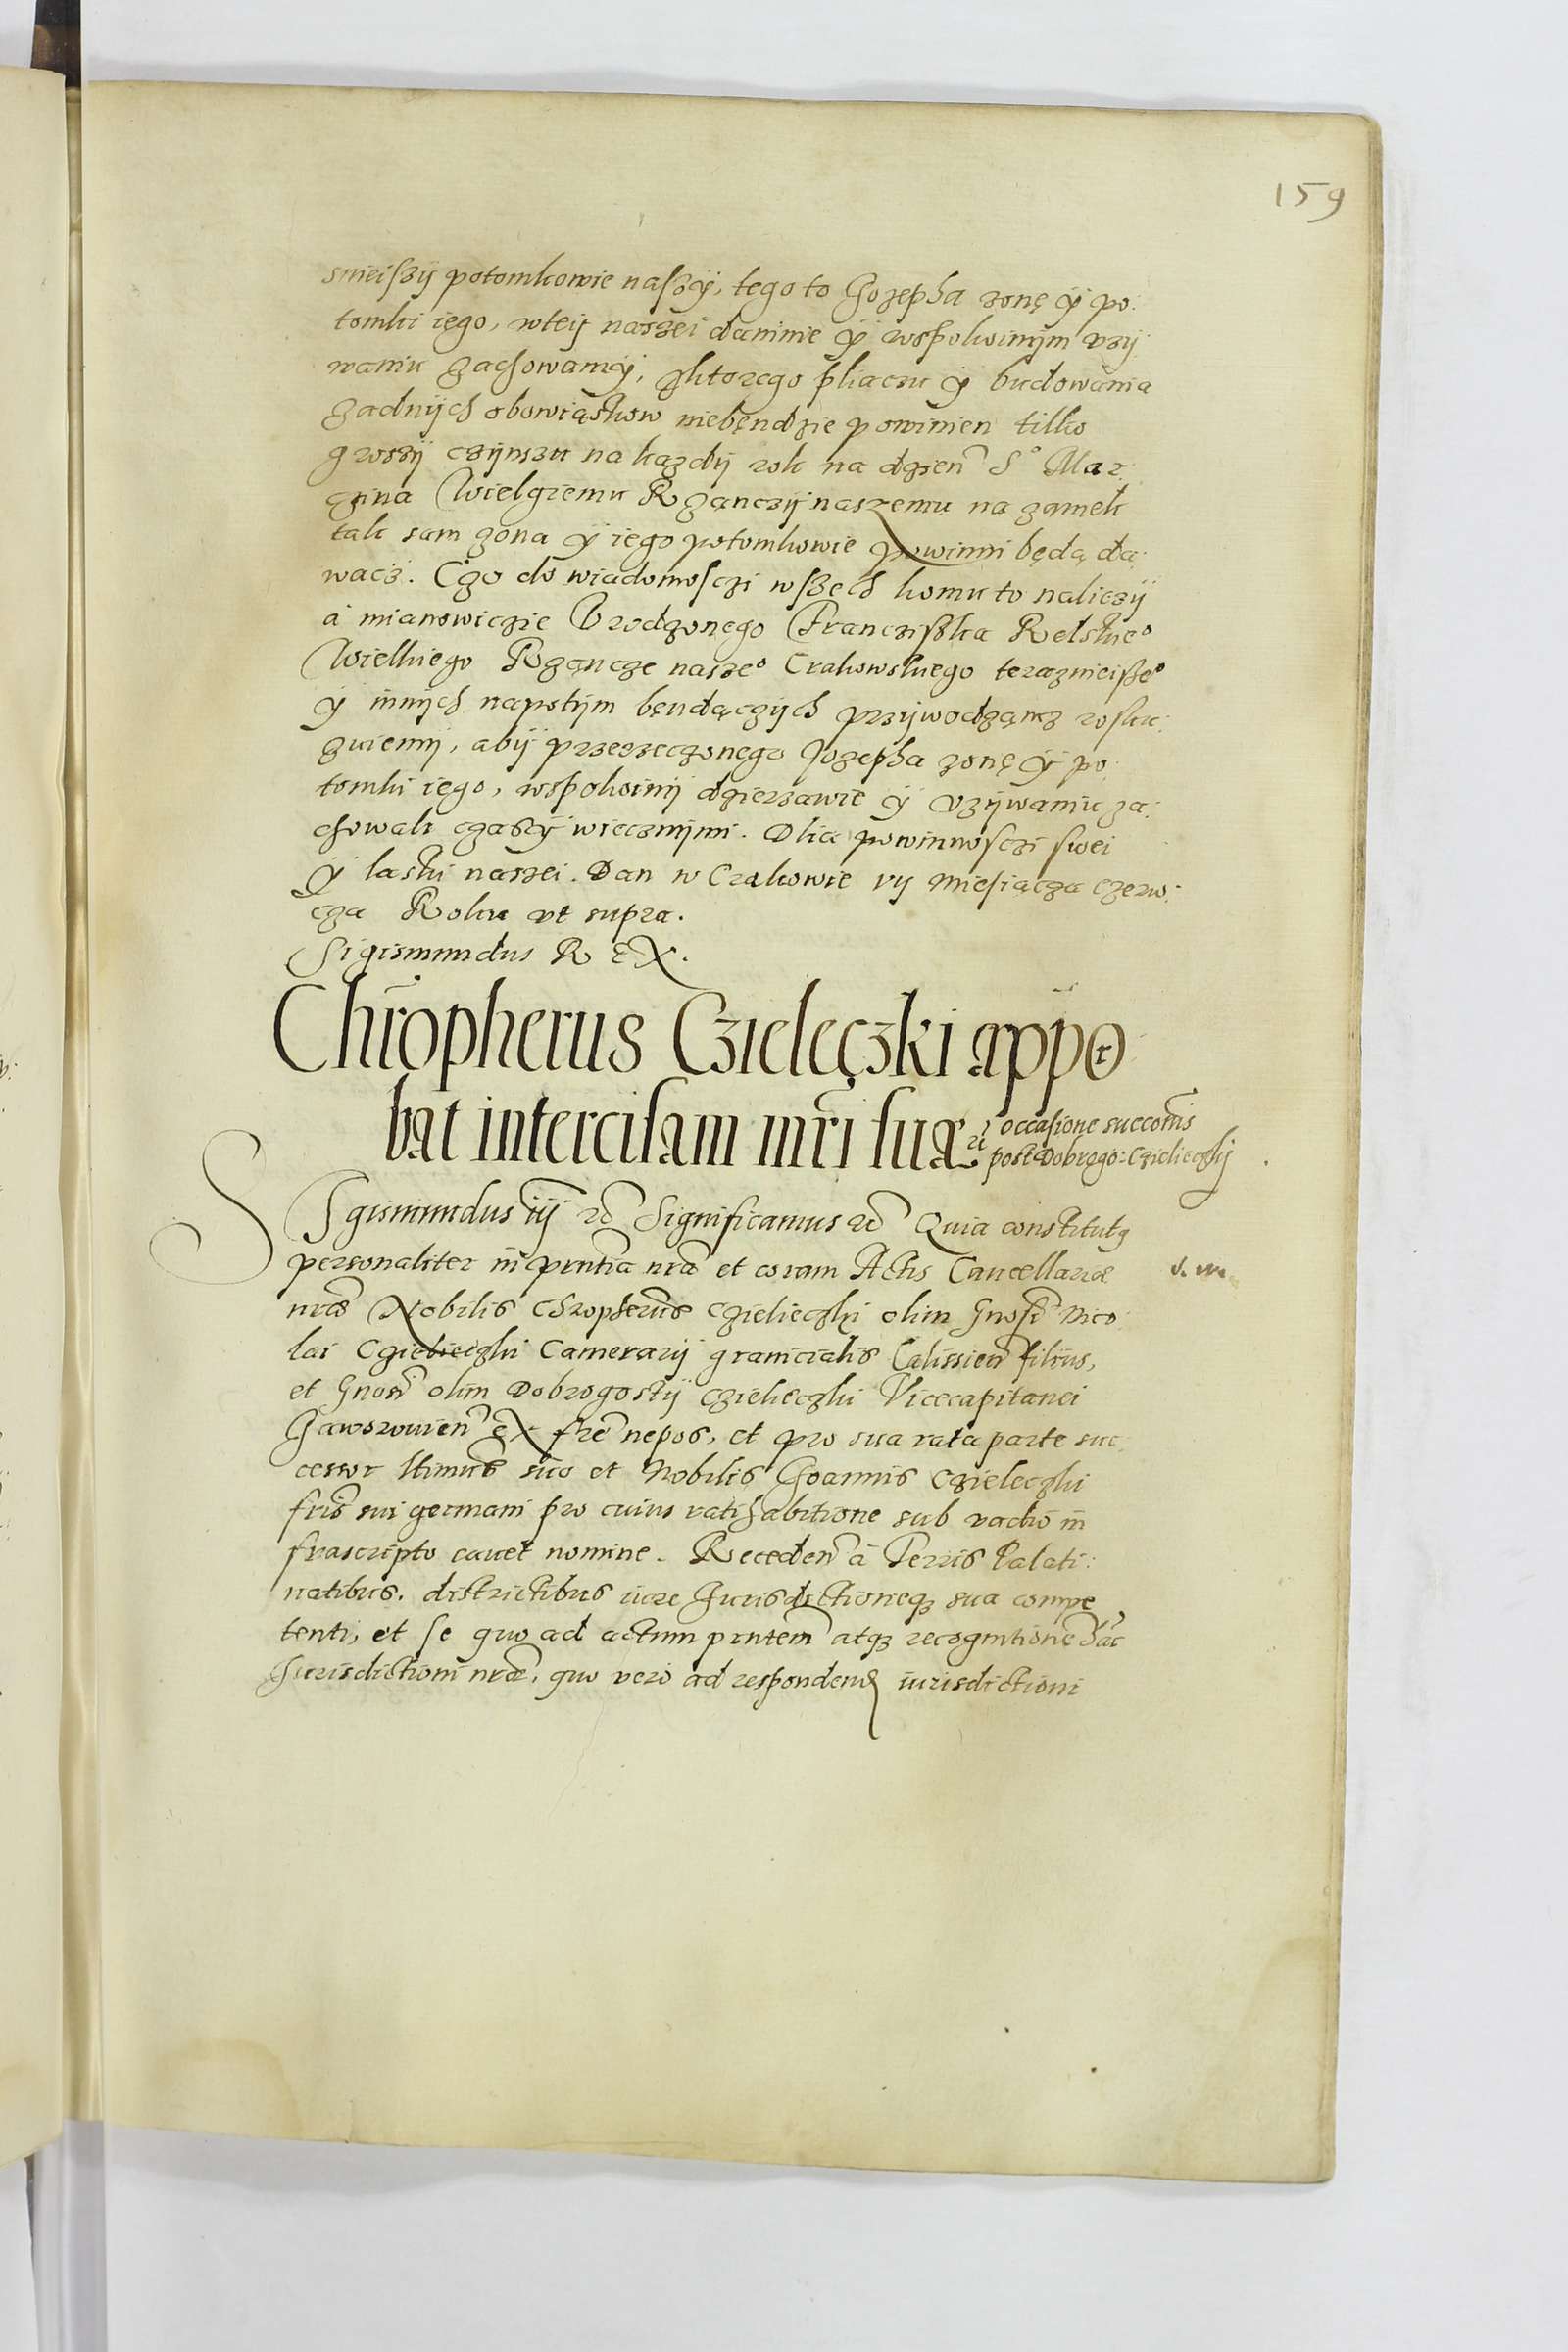 159
snieiszÿ potomkowie naszÿ, tego to Jozepha zonę ÿ po:
tomki iego, wteÿ naszei daninie ÿ wspokoinÿm vzÿ
waniu zachowamÿ, Zktorego pliaczu ÿ budowania
zadnÿch obowiąskow niebęndzie powinien tilko
groszÿ czÿnszu na kazdÿ rok na dzien̄ S° Mar:
czina Wielgiemu Rzączÿ naszemu na zamek
tak sam zona ÿ iego potomkowie powinni będą da:
wacz. Czo do wiadomosczi wszech komu to naliezÿ
à mianowiczie Vrodzonego Franciszka Relskie°
Wielkiego Rządcze nasze° Crakowskiego terazniejsze°
ÿ innÿch napotÿm bęndączÿch przÿwodzącz roska:
zuiemÿ, abÿ przerzeczonego Jozepha zonę ÿ po
tomki iego, wspokoinÿ dzierzawie ÿ vzÿwaniu za:
chowali czasÿ wiecznÿmi. Dlia powinnosczi swei
ÿ laski naszei. Dan w Crakowie vÿ miesiącza czerw:
cza Roku vt supra.
Sigismundus REX.
Chr̄opherus Czieleczki appro
bat intercisam mr̄i suæ
occasione succon̄is
post Dobrogo: Czielieczkÿ
Sigismundus iÿ rc̄ Significamus rc̄ Quia constitutꝫ
personaliter in pn̄tia nr̄a et coram Actis Cancellariæ
nr̄æ Nobilis Chr̄opherus Czielieczki olim Gn̄osi Nico
lai Czielieczki Camerarÿ granicialis Calissien̄ filius,
et Gn̄osi olim Dobrogostÿ Czielieczki Vicecapitanei
Jaworowien̄ ex fr̄e nepos, et pro sua rata parte suc
cessor ltimus suo et Nobilis Joannis Czieleczki
fr̄is sui germani pro cuius ratihabitione sub vadio in
frascripto cavet nomine. Receden̄ à Terris Palati:
natibus. districtibus iure Jurisdictioneqꝫ sua compe
tenti, et se quo ad actum pn̄tem atqꝫ recognitionē hac
Jurisdictioni nr̄æ, quo vero ad respondenꝭ iurisdictioni